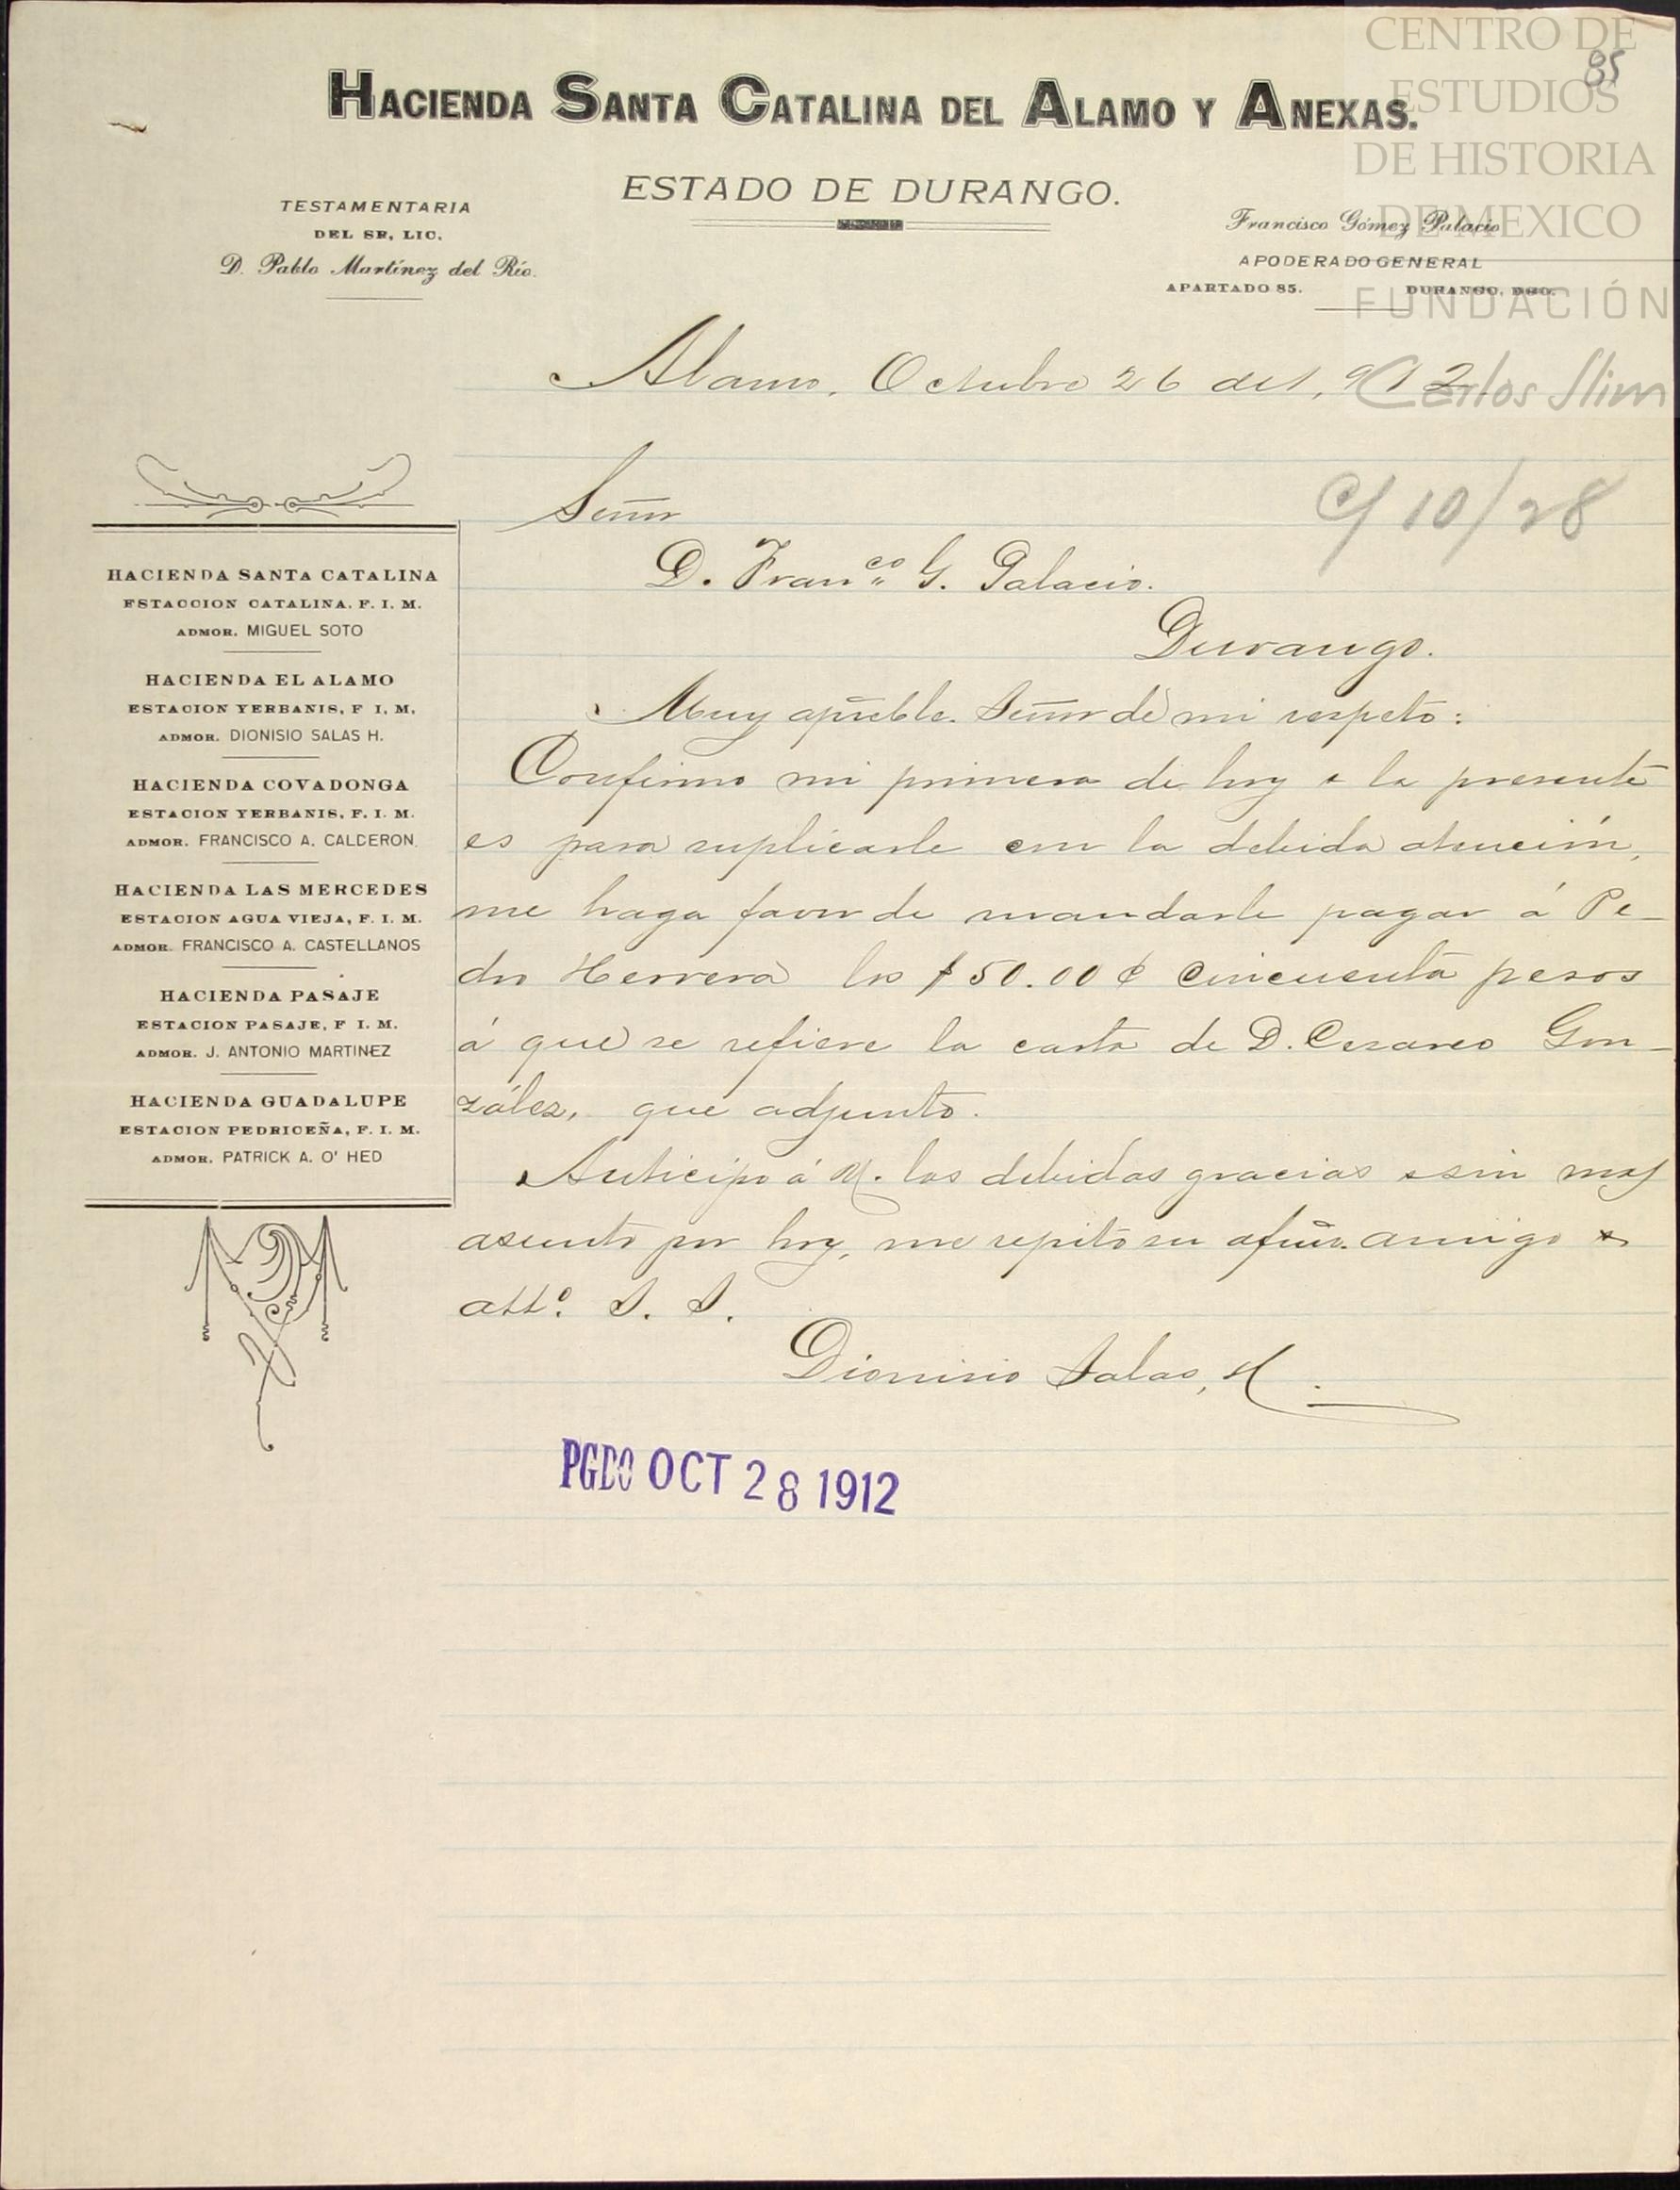 CENTRO DE
ESTUDIOS
DE HISTORIA
DE MEXICO
FUNDACIÓN
Carlos Slim
85
HACIENDA SANTA CATALINA DEL ALAMO Y ANEXAS.
ESTADO DE DURANGO.
TESTAMENTARIA
DEL SR, LIC.
D. Pablo Martínez del Río.
Francisco Gómez Palacio
APODERADO GENERAL
APARTADO 85. DURANGO, DGO.
Alamo, Octubre 26 de 1,912
C/ 10/28
Señor
D. Franco. G. Palacio.
Durango.
Muy apreble. Señor de mi respeto:
Confirmo mi primera de hoy & la presente
es para suplicarle con la debida atención,
me haga favor de mandarle pagar á Pe-
dro Herrera los $50.00 ¢ cincuenta pesos
á que se refiere la carta de D. Cesareo Gon-
zález, que adjunto.
Anticipo á U. las debidas gracias & sin mas
asunto por hoy, me repito su afmo. amigo &
atto. S. S.
Dionisio Salas, H.
PGDO OCT 28 1912
HACIENDA SANTA CATALINA
ESTACCION CATALINA. F. I. M.
ADMOR. MIGUEL SOTO
HACIENDA EL ALAMO
ESTACION YERBANIS, F I. M.
ADMOR. DIONISIO SALAS H.
HACIENDA COVADONGA
ESTACION YERBANIS, F. I. M.
ADMOR. FRANCISCO A. CALDERON.
HACIENDA LAS MERCEDES
ESTACION AGUA VIEJA, F. I. M.
ADMOR. FRANCISCO A. CASTELLANOS
HACIENDA PASAJE
ESTACION PASAJE, F I. M.
ADMOR. J. ANTONIO MARTINEZ
HACIENDA GUADALUPE
ESTACION PEDRICEÑA, F. I. M.
ADMOR. PATRICK A. O' HED